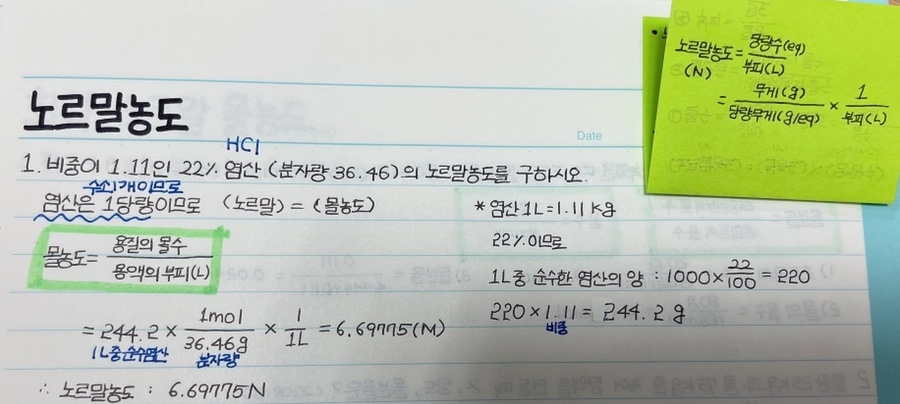 노르말농도
Date
HCl
1. 비중이 1.11인 22% 염산 (분자량 36.46)의 노르말농도를 구하시오.
수소1개이므로
염산은 1당량이므로 (노르말) = (몰농도)
몰농도 = 용질의 몰수 / 용액의 부피(L)
= 244.2 × 1mol / 36.46g × 1 / 1L = 6.69775(M)
1L중 순수염산 분자량
∴ 노르말농도 : 6.69775N
* 염산 1L = 1.11 kg
22%이므로
1L중 순수한 염산의 양 : 1000 × 22 / 100 = 220
220 × 1.11 = 244.2 g
비중
노르말농도 = 당량수(eq) / 부피(L)
(N)
= 무게(g) / 당량무게(g/eq) × 1 / 부피(L)